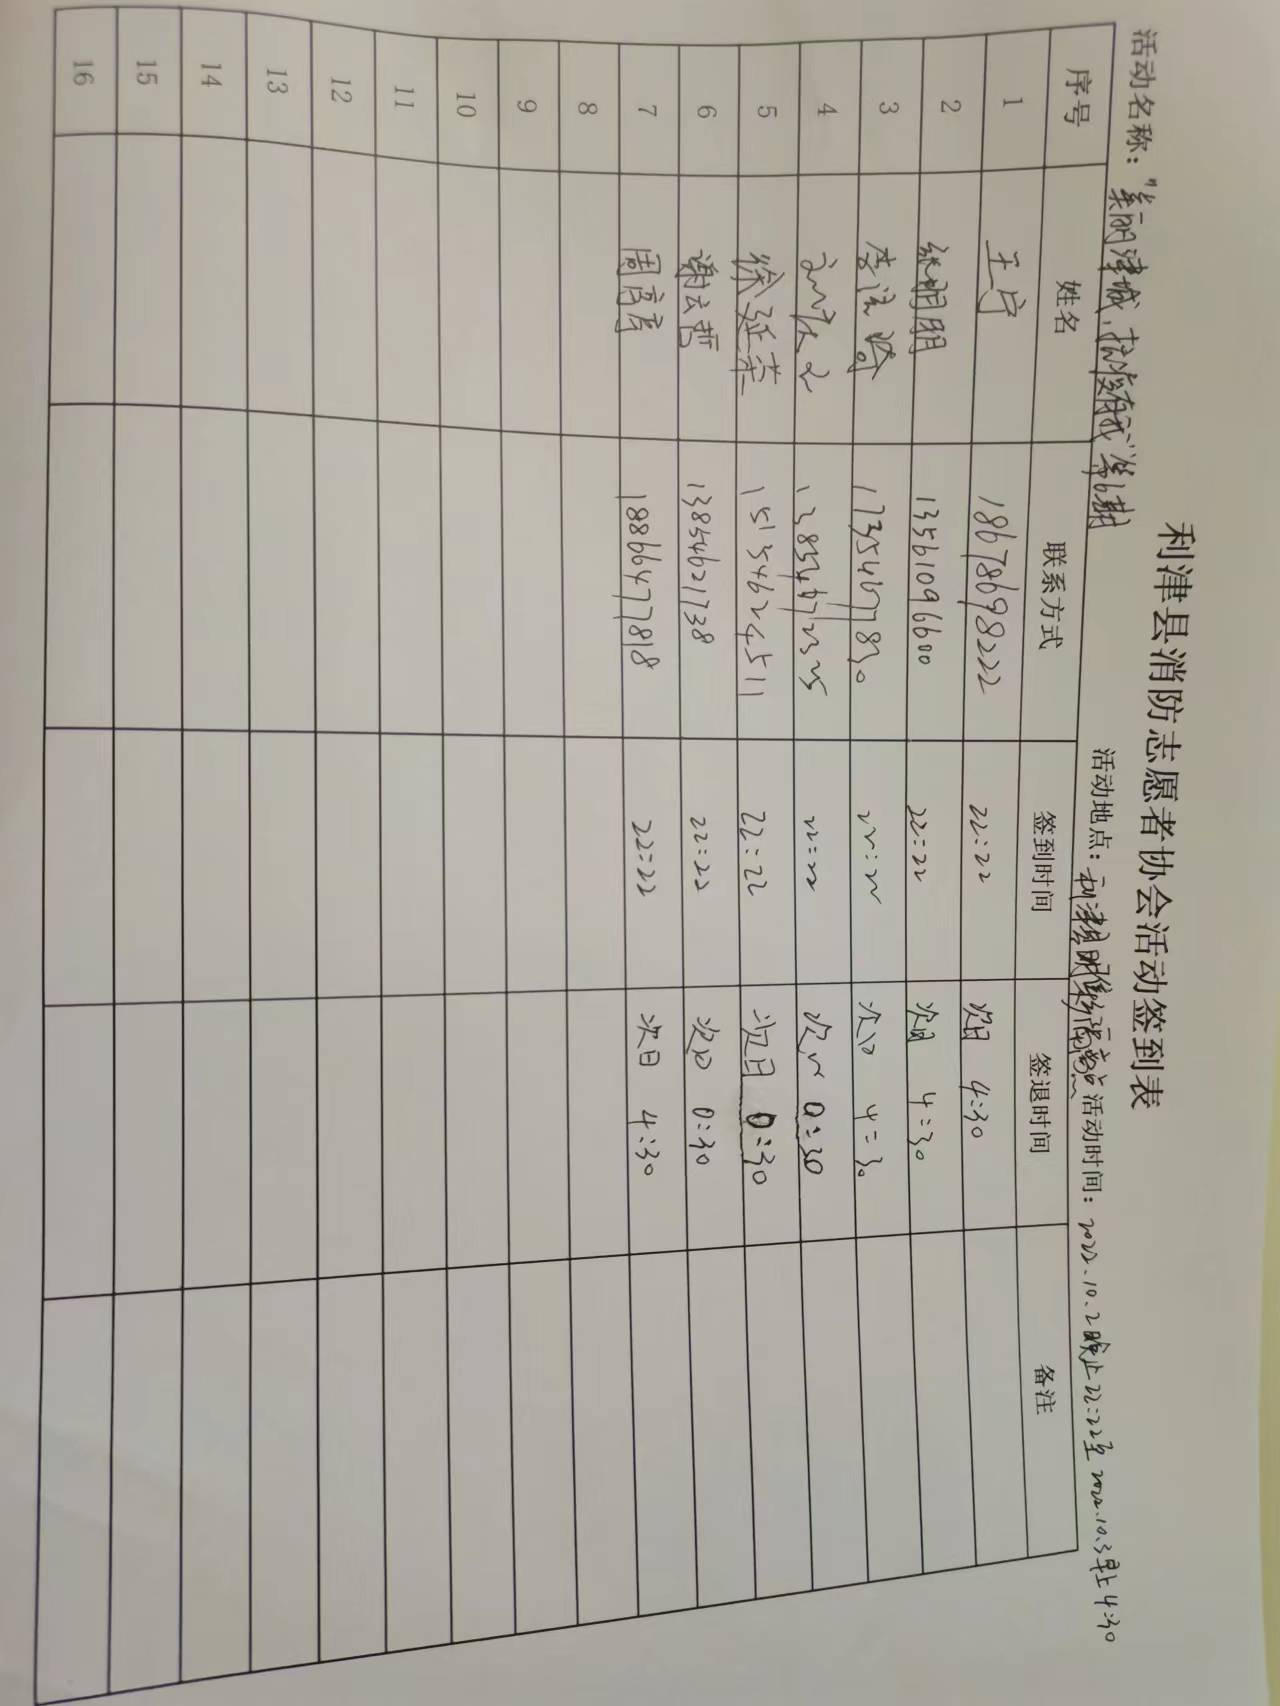 利津县消防志愿者协会活动签到表
活动名称：“美丽津城，抗疫有我”第6期 活动地点：利津县 活动时间：2022.10.2晚上22:22至2022.10.3早上4:30
序号 姓名 联系方式 签到时间 签退时间 备注
1 王宁 18678698222 22:22 次日 4:30
2 张明明 13561096600 22:22 次日 4:30
3 李 17354677830 22:22 次日 4:30
4 22:22 次日 0:30
5 徐延荣 15154624511 22:22 次日 0:30
6 谢云哲 13854621738 22:22 次日 0:30
7 周彦彦 18866477818 22:22 次日 4:30
8
9
10
11
12
13
14
15
16